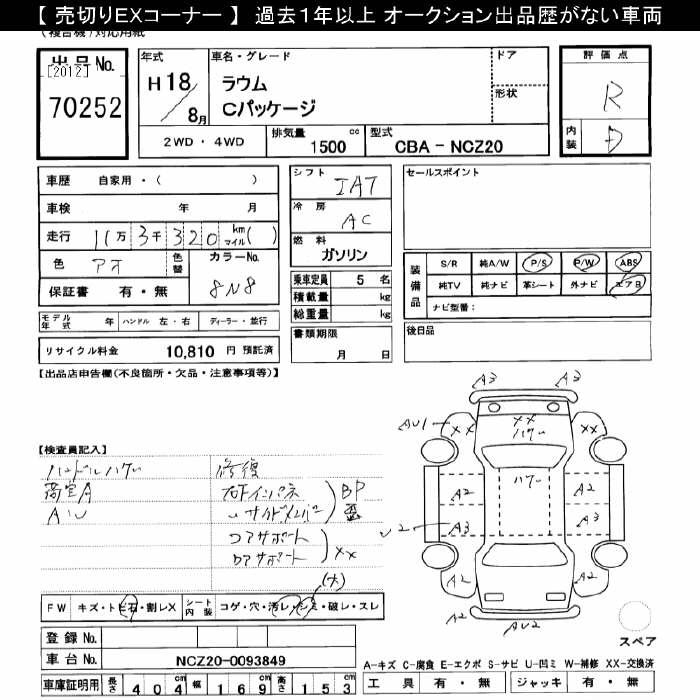 【 売切りEXコーナー 】 過去１年以上 オークション出品歴がない車両
(複合機)対応用紙
出品No.
[2012]
70252
年式
H 18
8月
車名・グレード
ラウム
Cパッケージ
ドア
形状
評価点
R
内装
D
2WD ・ 4WD
排気量
1500 cc
型式
CBA - NCZ20
車歴 自家用・( )
車検 年 月
走行 11万 3千 320 km マイル( )
色 アオ
色替
カラーNo.
8N8
保証書 有・無
シフト
IAT
冷房
AC
燃料
ガソリン
乗車定員 5 名
積載量 kg
総重量 kg
書類期限
月 日
セールスポイント
装備品
S/R 純A/W P/S P/W ABS
純TV 純ナビ 革シート 外ナビ エアB
ナビ型番:
後日品
モデル年式 年
ハンドル 左・右
ディーラー・並行
リサイクル料金 10,810 円 預託済
【出品店申告欄(不良箇所・欠品・注意事項等)】
【検査員記入】
ハンドルハゲ
荷室A
AU
修復
右Fインパネ
〃サイドメンバー
BP
歪
コアサポート
ロアサポート
XX
(大)
A3
A3
AU1
XX
XX
ハゲ
XX
ハゲ
A2
A2
A3
A3
U2
A2
A2
A2
AU2
スペア
FW キズ・トビ石・割レX
シート内装 コゲ・穴・汚レ・シミ・破レ・スレ
登録No.
車台No. NCZ20-0093849
車庫証明用 長さ 404 cm 幅 169 cm 高さ 153 cm
A-キズ C-腐食 E-エクボ S-サビ U-凹ミ W-補修 XX-交換済
工具 有・無 ジャッキ 有・無